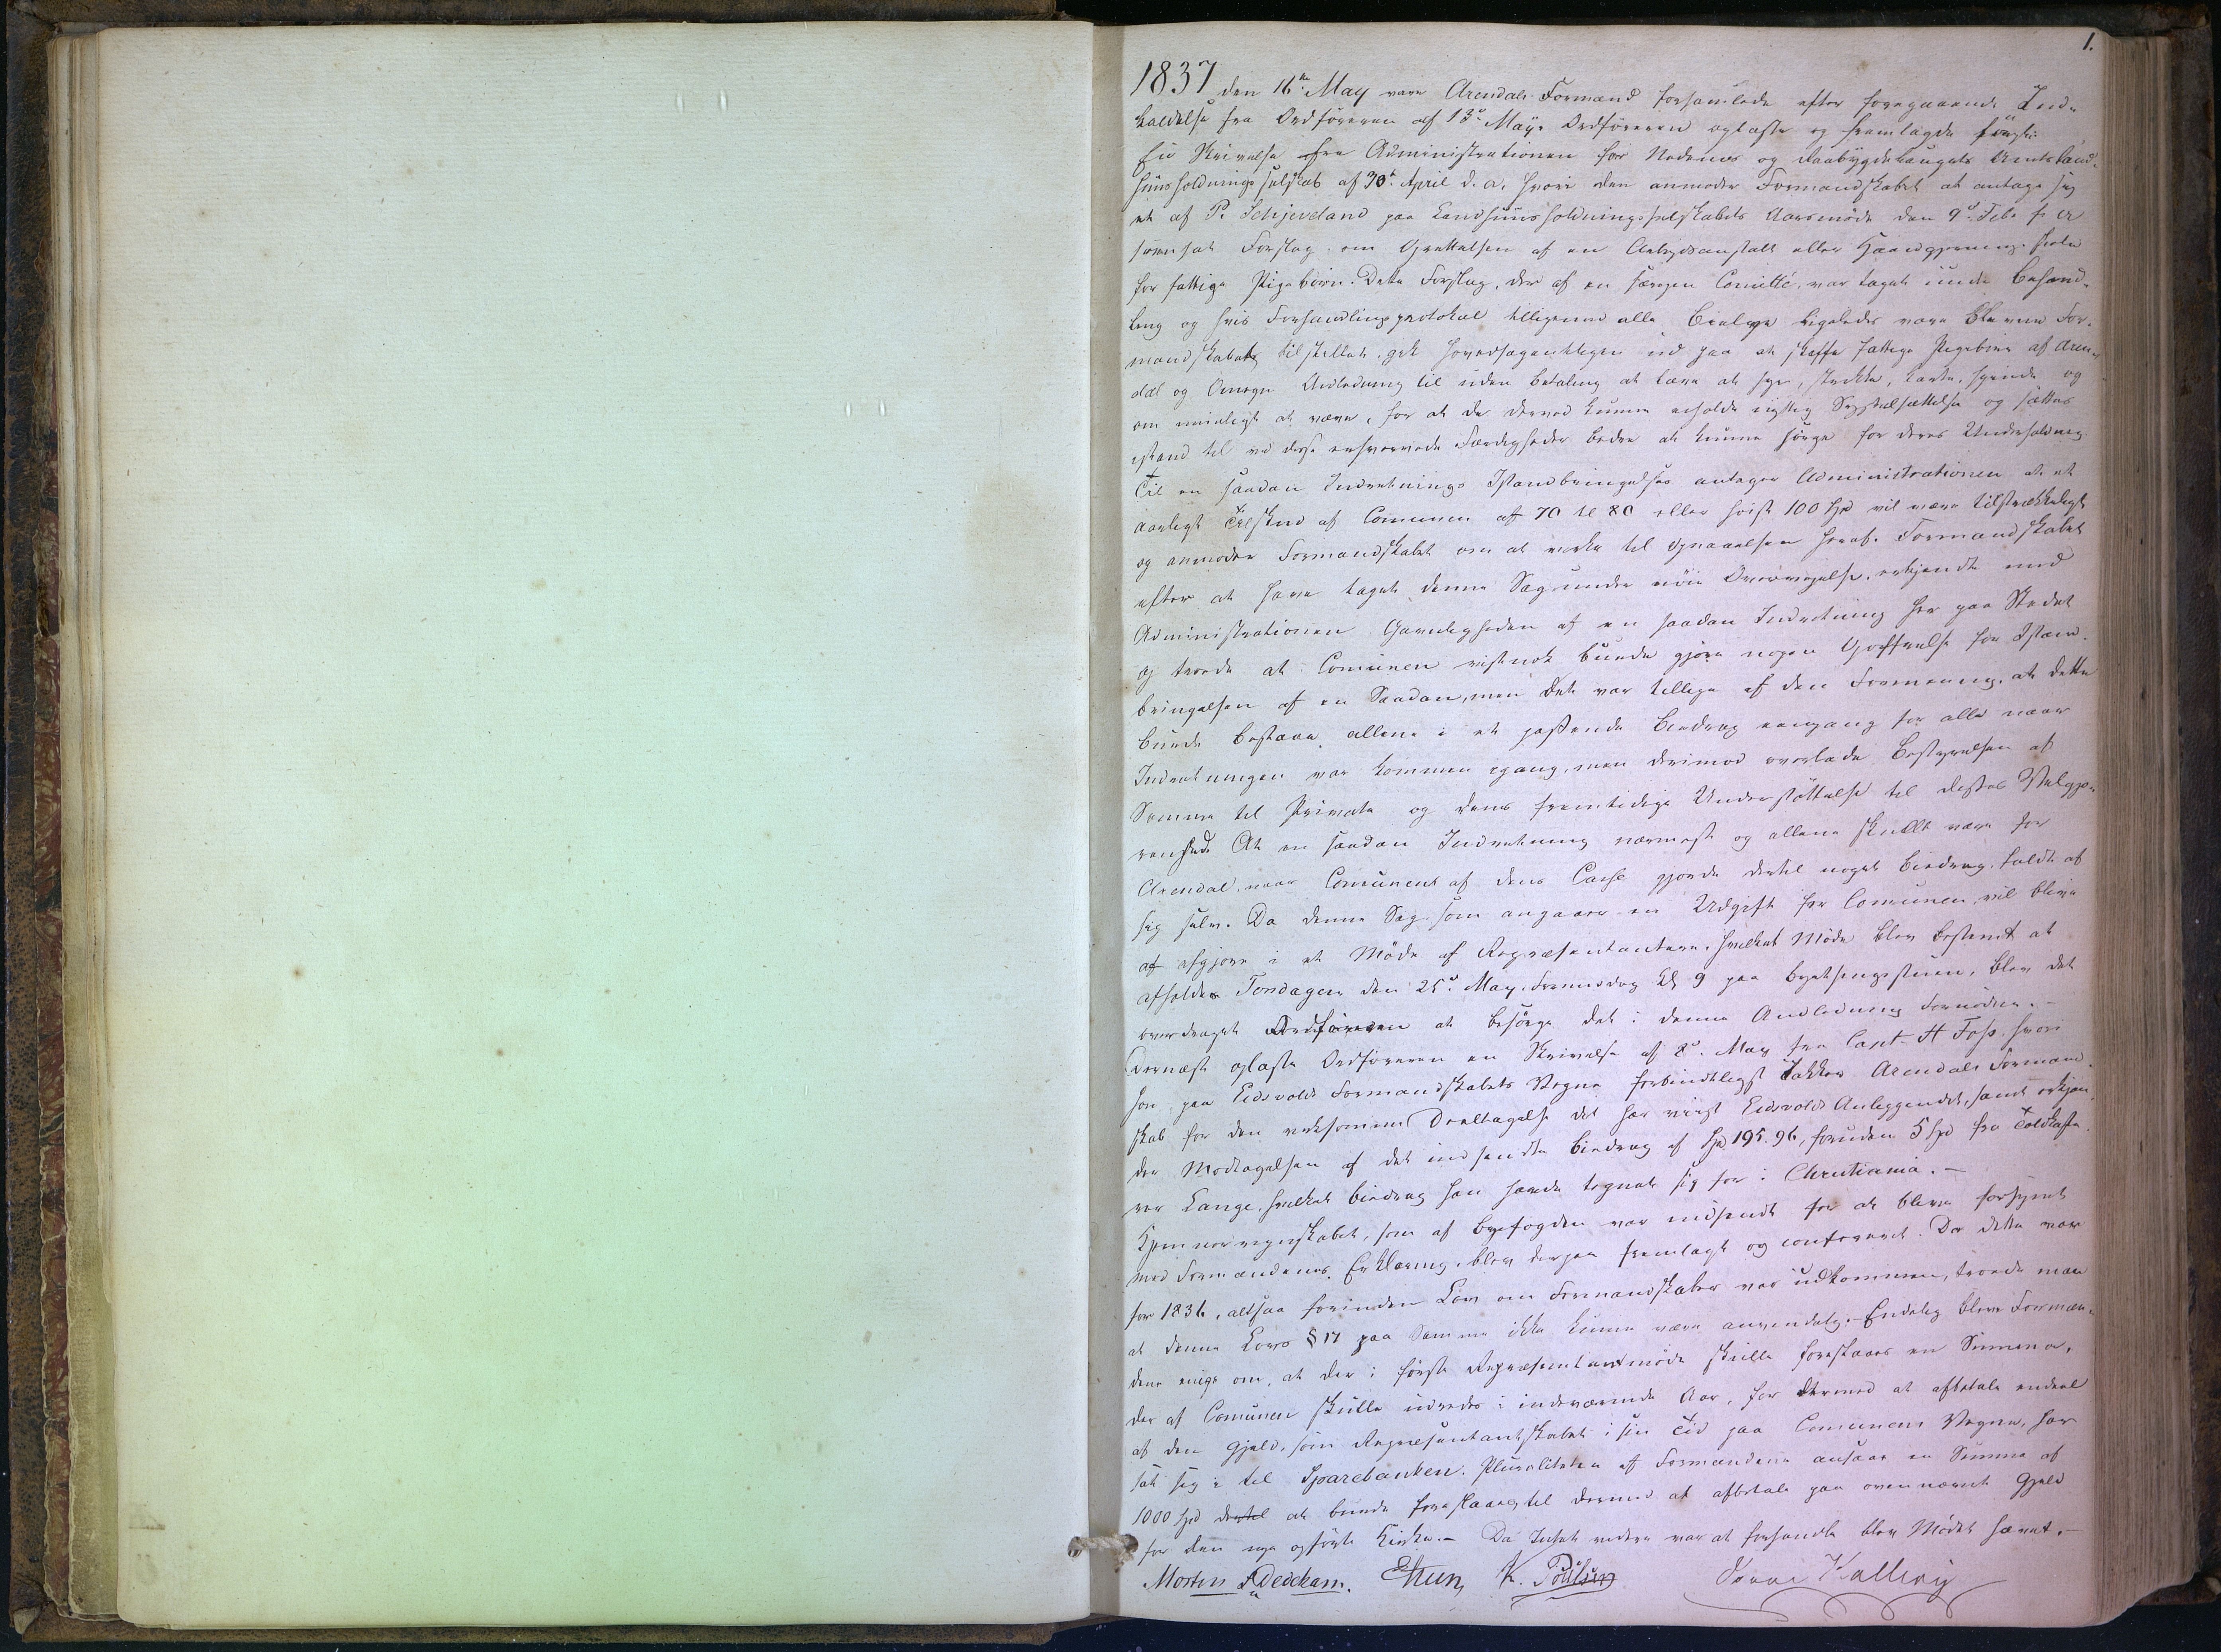 1.
1837 den 16de May vare Arendals Formænd forsamlede efter foregaaende Ind-
kaldelse fra Ordføreren af 13de May. Ordføreren oplæste og fremlagde først:
En Skrivelse fra Administrationen for Nedenes og Raabygdelaugets Amts Land-
huusholdnings selskab af 30te April d. a. hvori den anmoder Formandskabet at antage sig
et af P. Schjeveland paa Landhuusholdningsselskabets Aarsmøde den 9de Feb. f. A
fremsat Forslag om Oprettelsen af en Arbeidsanstalt eller Haandgjernings skole
for fattige Pigebørn. Dette Forslag, der af en særegen Comitté, var taget under Behand-
ling og hvis Forhandlingsprotokol tilligemed alle Bielage ligeledes vare blevne For-
mandskabet tilstillet, gik hovedsagentligen ud paa at skaffe fattige Pigebørn af Aren-
dal og Omegn Anledning til uden Betaling at lære at sye, strikke, karte, spinde og
om mueligt at væve, for at de derved kunne erholde nyttig Sysselsættelse og sættes
istand til ved disse erhvervede Færdigheder bedre at kunne sørge for deres Underholdning.
Til en saadan Indretnings Istandbringelse antager Administrationen at et
aarligt Tilskud af Comunen af 70 til 80 eller høist 100 Spd vil være tilstrækkeligt
og anmoder Formandskabet om at virke til Opnaaelsen heraf. Formandskabet
efter at have taget denne Sag under nøie Overveielse, erkjendte med
Administrationen Gavnligheden af en saadan Indretning her paa Stedet
og troede at Comunen vistnok burde gjøre nogen Opoffrelse for Istand-
bringelsen af en Saadan, men det var tillige af den Formening, at dette
burde bestaae allene i et passende Bidrag eengang for alle naar
Indretningen var kommen igang, men derimod overlade Bestyrelsen af
Samme til Private og dens fremtidige Understøttelse til disses Velgjø-
renhed. At en saadan Indretning nærmest og allene skulde være for
Arendal, naar Comunens af dens Casse gjorde dertil noget Bidrag, faldt af
sig selv. Da denne Sag som angaaer en Udgift for Comunen, vil blive
at afgjøre i et Møde af Repræsentantere, hvilket Møde blev bestemt at
afholdes Torsdagen den 25de May Formiddag Kl 9 paa Byethingsstuen, blev det
overdraget Ordføreren at besørge det i denne Anledning Fornødne. -
Dernæst oplæste Ordføreren en Skrivelse af 8de May fra Capt. H Foss, hvori
han paa Eidsvolds Formandskabets Vegne forbindtligst takker Arendals Formand-
skab for den virksomme Deeltagelse det har viist Eidsvolds Anliggendet, samt erkjen-
der Modtagelsen af det indsendte Bidrag af Spd 195. 96, foruden 5 Spd fra Toldkasse-
rer Lange, hvilket Bidrag han havde tegnet sig for i Christiania. -
Kæmnerregnskabet, som af Byefogden var indsendt for at blive forsynet
med Formændenes Erklæring, blev derpaa fremlagt og confereret. Da dette var
for 1836, altsaa forinden Lov om Formandskaber var udkommen, troede man
at denne Lovs § 17 paa Samme ikke kunne være anvendelig. Endelig bleve Formæn-
dene enige om, at der i første Repræsentantmøde skulle foreslaaes en Summa,
der af Comunen skulle udredes i indeværende Aar, for dermed at afbetale endeel
af den Gjæld, som Repræsentantskabet i sin Tid paa Comunens Vegne, har
sat sig i til Sparebanken. Pluraliteten af Formændene ansaae en Summa af
1000 Spd dertil at burde foreslaaes til dermed at afbetale paa ovennævnte Gjæld
for den nye opførte Kirke. - Da Intet videre var at forhandle blev Mødet hævet. -
Morten S Dedekam. K. Poulsen Kallevig